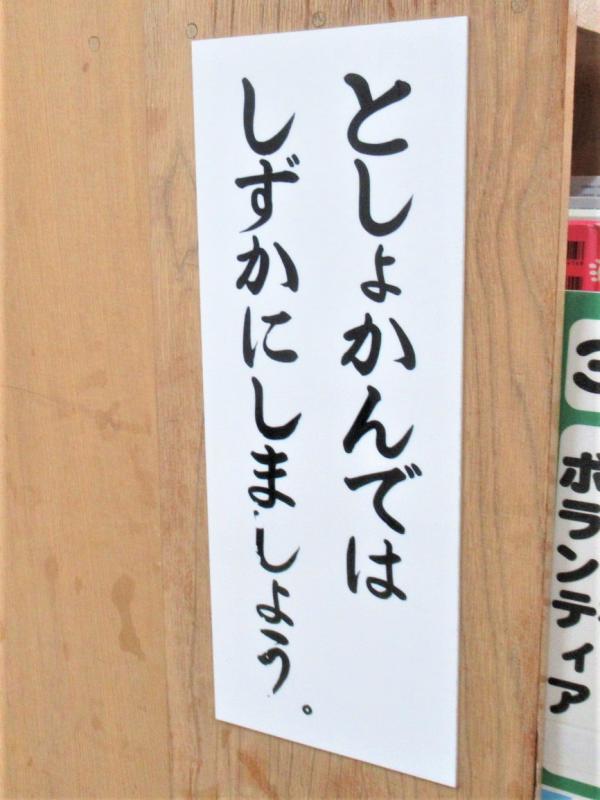 としょかんでは
しずかにしましょう。
3
ボランティア